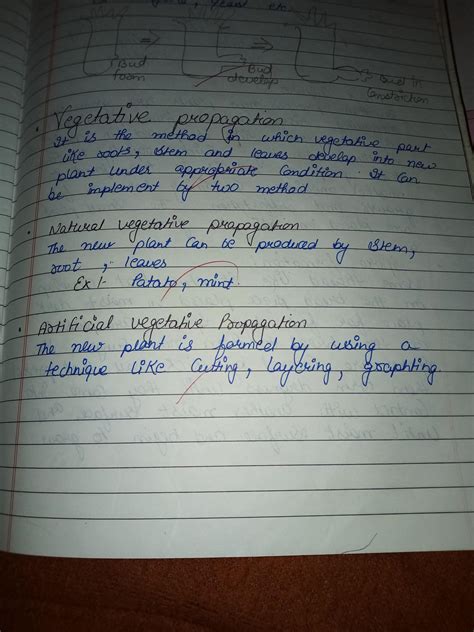 yeast etc
Bud
form
Bud
develop
Bud in
Constriction
Vegetative propagation
It is the method in which vegetative part
like roots, stem and leaves develop into new
plant under appropriate condition. It can
be implement by two method
Natural vegetative propagation
The new plant can be produced by stem,
root, leaves
Ex :- Patato, mint.
Artificial vegetative Propagation
The new plant is formed by using a
technique like Cutting, layering, graphting.